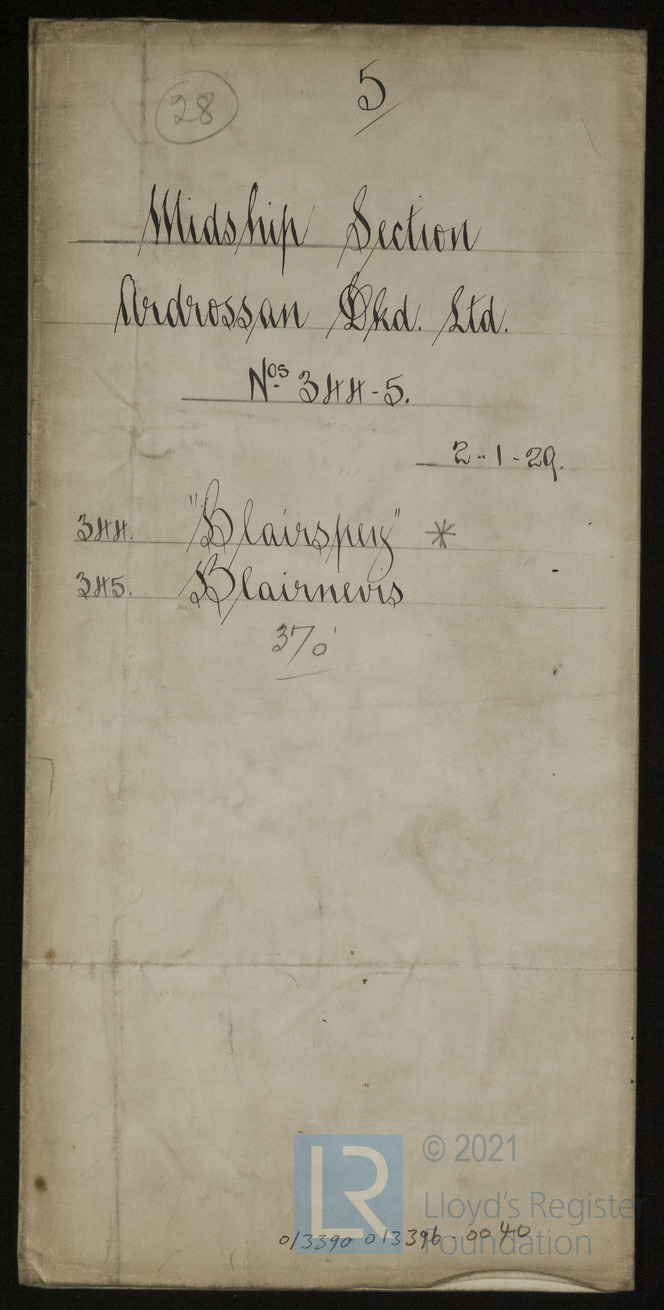 28
5
Midship Section
Ardrossan Dkd. Ltd.
Nos 344-5.
2-1-29.
344. "Blairspey" *
345. Blairnevis
370'
© 2021
LR
Lloyd's Register
Foundation
013390 013396-0040